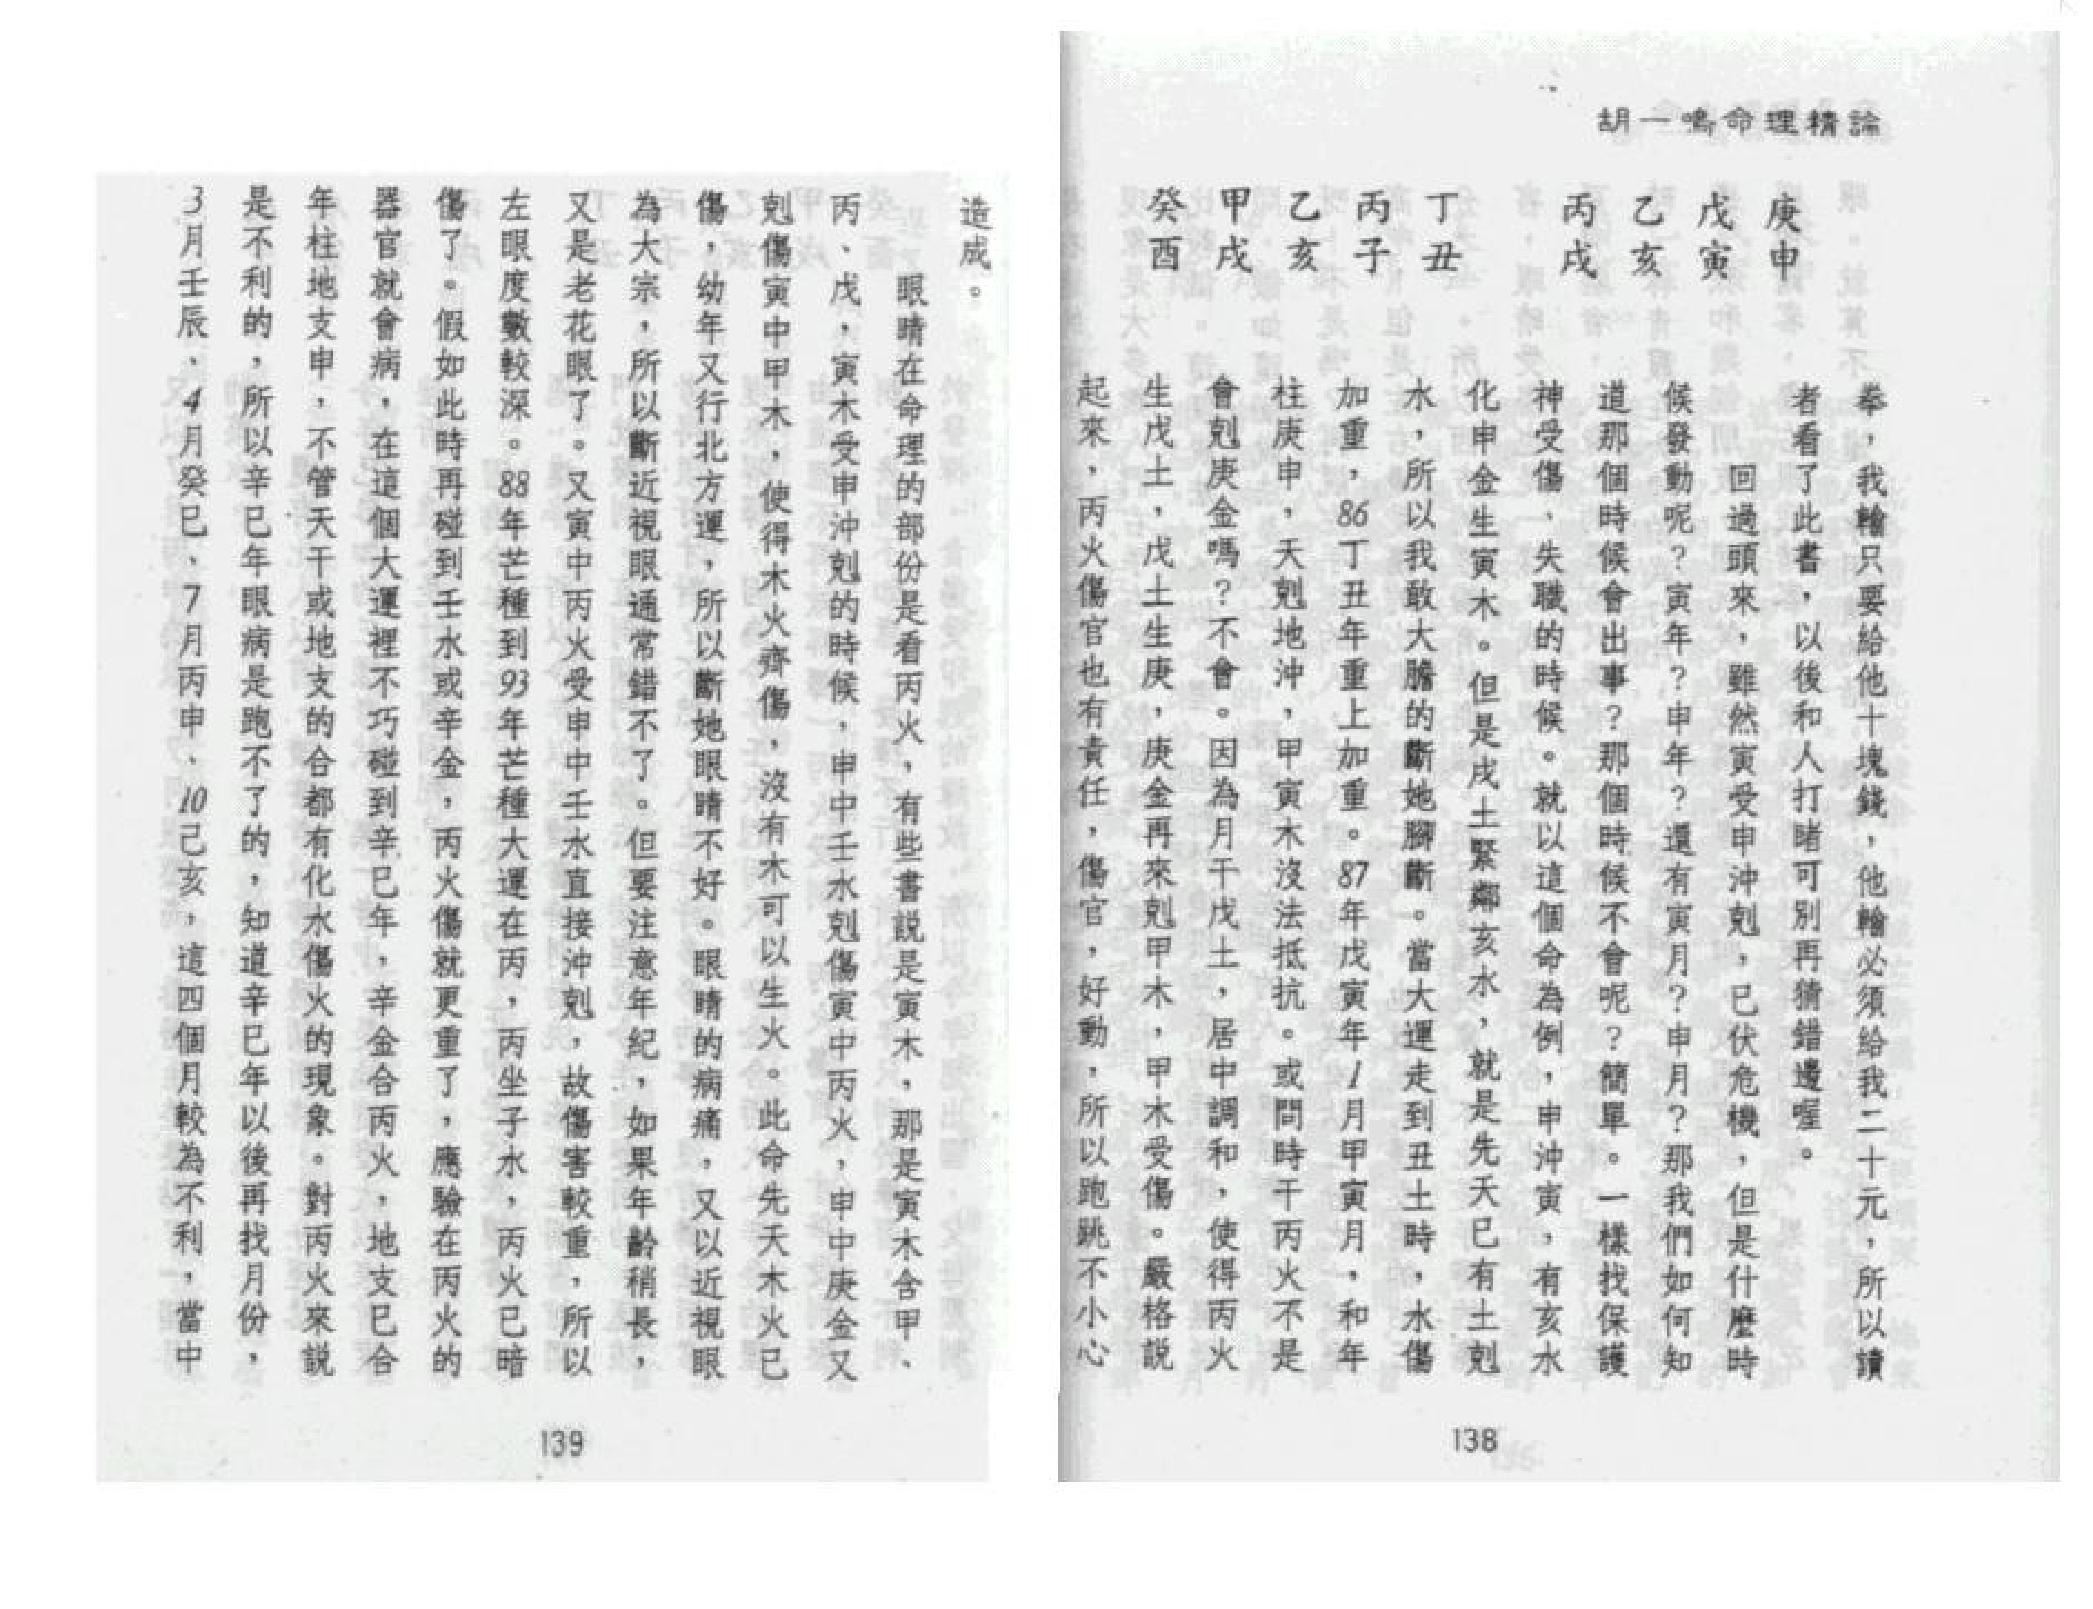 胡一鳴命理精論
庚申
戊寅
乙亥
丙戌
丁丑
丙子
乙亥
甲戌
癸酉
拳，我輸只要給他十塊錢，他輸必須給我二十元，所以讀
者看了此書，以後和人打賭可別再猜錯邊喔。
回過頭來，雖然寅受申沖剋，已伏危機，但是什麼時
候發動呢？寅年？申年？還有寅月？申月？那我們如何知
道那個時候會出事？那個時候不會呢？簡單。一樣找保護
神受傷、失職的時候。就以這個命為例，申沖寅，有亥水
化申金生寅木。但是戌土緊鄰亥水，就是先天已有土剋
水，所以我敢大膽的斷她腳斷。當大運走到丑土時，水傷
加重，86丁丑年重上加重。87年戊寅年1月甲寅月，和年
柱庚申，天剋地沖，甲寅木沒法抵抗。或問時干丙火不是
會剋庚金嗎？不會。因為月干戊土，居中調和，使得丙火
生戊土，戊土生庚，庚金再來剋甲木，甲木受傷。嚴格說
起來，丙火傷官也有責任，傷官，好動，所以跑跳不小心
138
造成。
眼睛在命理的部份是看丙火，有些書說是寅木，那是寅木含甲、
丙、戊，寅木受申沖剋的時候，申中壬水剋傷寅中丙火，申中庚金又
剋傷寅中甲木，使得木火齊傷，沒有木可以生火。此命先天木火已
傷，幼年又行北方運，所以斷她眼睛不好。眼睛的病痛，又以近視眼
為大宗，所以斷近視眼通常錯不了。但要注意年紀，如果年齡稍長，
又是老花眼了。又寅中丙火受申中壬水直接沖剋，故傷害較重，所以
左眼度數較深。88年芒種到93年芒種大運在丙，丙坐子水，丙火已暗
傷了。假如此時再碰到壬水或辛金，丙火傷就更重了，應驗在丙火的
器官就會病，在這個大運裡不巧碰到辛巳年，辛金合丙火，地支巳合
年柱地支申，不管天干或地支的合都有化水傷火的現象。對丙火來説
是不利的，所以辛巳年眼病是跑不了的，知道辛巳年以後再找月份，
3月壬辰、4月癸巳、7月丙申、10己亥，這四個月較為不利，當中
139